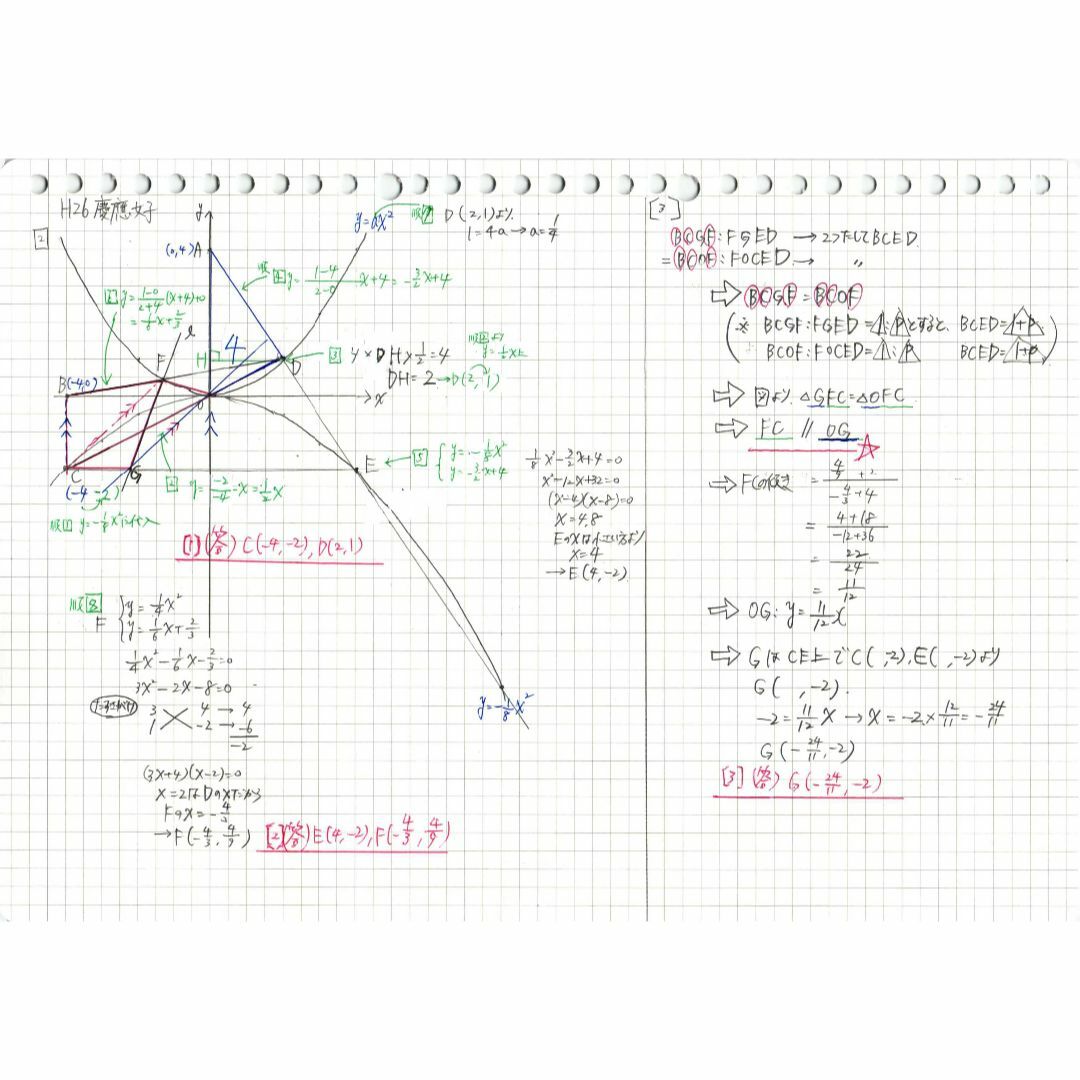 H26 慶應女子
2
y
y=ax²
D(2,1)より
1=4a→a=1/4
(0,4)A
y=(1-4)/(2-0)x+4=-3/2x+4
y=(1-0)/(2+4)(x+4)+0
=1/6x+2/3
l
4
H
D
3 4×DH×1/2=4
DH=2→D(2,1)
y=1/2x上
F
B(-4,0)
O
x
C
G
E
(-4,-2)
y=-1/8x²に代入
y=-2/-4・x=1/2x
5 {y=-1/8x²
y=-3/2x+4
1/8x²-3/2x+4=0
x²-12x+32=0
(x-4)(x-8)=0
x=4,8
x=4
→E(4,-2)
[1](答) C(-4,-2), D(2,1)
順8
F {y=1/4x²
y=1/6x+2/3
1/4x²-1/6x-2/3=0
3x²-2x-8=0
たすきがけ
3 4→4
1 -2→-6
-2
(3x+4)(x-2)=0
x=2はDのxだから
Fのx=-4/3
→F(-4/3, 4/9)
[2](答) E(4,-2), F(-4/3, 4/9)
y=-1/8x²
[3]
BCGF:FGED →2つたしてBCED
=BCOF:FOCED→ 〃
⇨BCGF=BCOF
(※ BCGF:FGED=1:pとすると、BCED=1+p
BCOF:FOCED=1:p BCED=1+p)
⇨図より △GFC=△OFC
⇨FC // OG☆
⇨FCの傾き=(4/9+2)/(-4/3+4)
=(4+18)/(-12+36)
=22/24
=11/12
⇨OG: y=11/12x
⇨GはCE上でC( ,-2), E( ,-2)より
G( ,-2).
-2=11/12x→x=-2×12/11=-24/11
G(-24/11,-2)
[3](答) G(-24/11,-2)